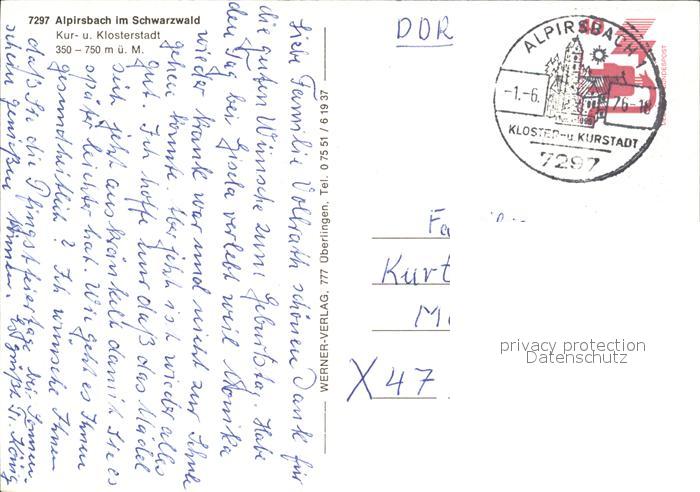 7297 Alpirsbach im Schwarzwald
Kur- u. Klosterstadt
350 – 750 m ü. M.
Liebe Familie Vollrath schönen Dank für
die guten Wünsche zum Geburtstag. Habe
den Tag bei Gisela verlebt weil Monika
wieder krank war und nicht zur Schule
gehen konnte. Aber jetzt ist wieder alles
gut. Ich hoffe nur daß das Mädel
sich jetzt auskränkelt damit sie es
später leichter hat. Wie geht es Ihnen
gesundheitlich? Ich wünsche Ihnen
daß Sie die Pfingstfeiertage bei Sonnen-
schein genießen können.
Es grüßt Fr. König
WERNER-VERLAG, 777 Überlingen, Tel. 0 75 51 / 6 19 37
DDR
ALPIRSBACH 1
-1.-6.
76-18
KLOSTER- u. KURSTADT
7297
BUNDESPOST
Fa
Kurt
M
X 47
privacy protection
Datenschutz